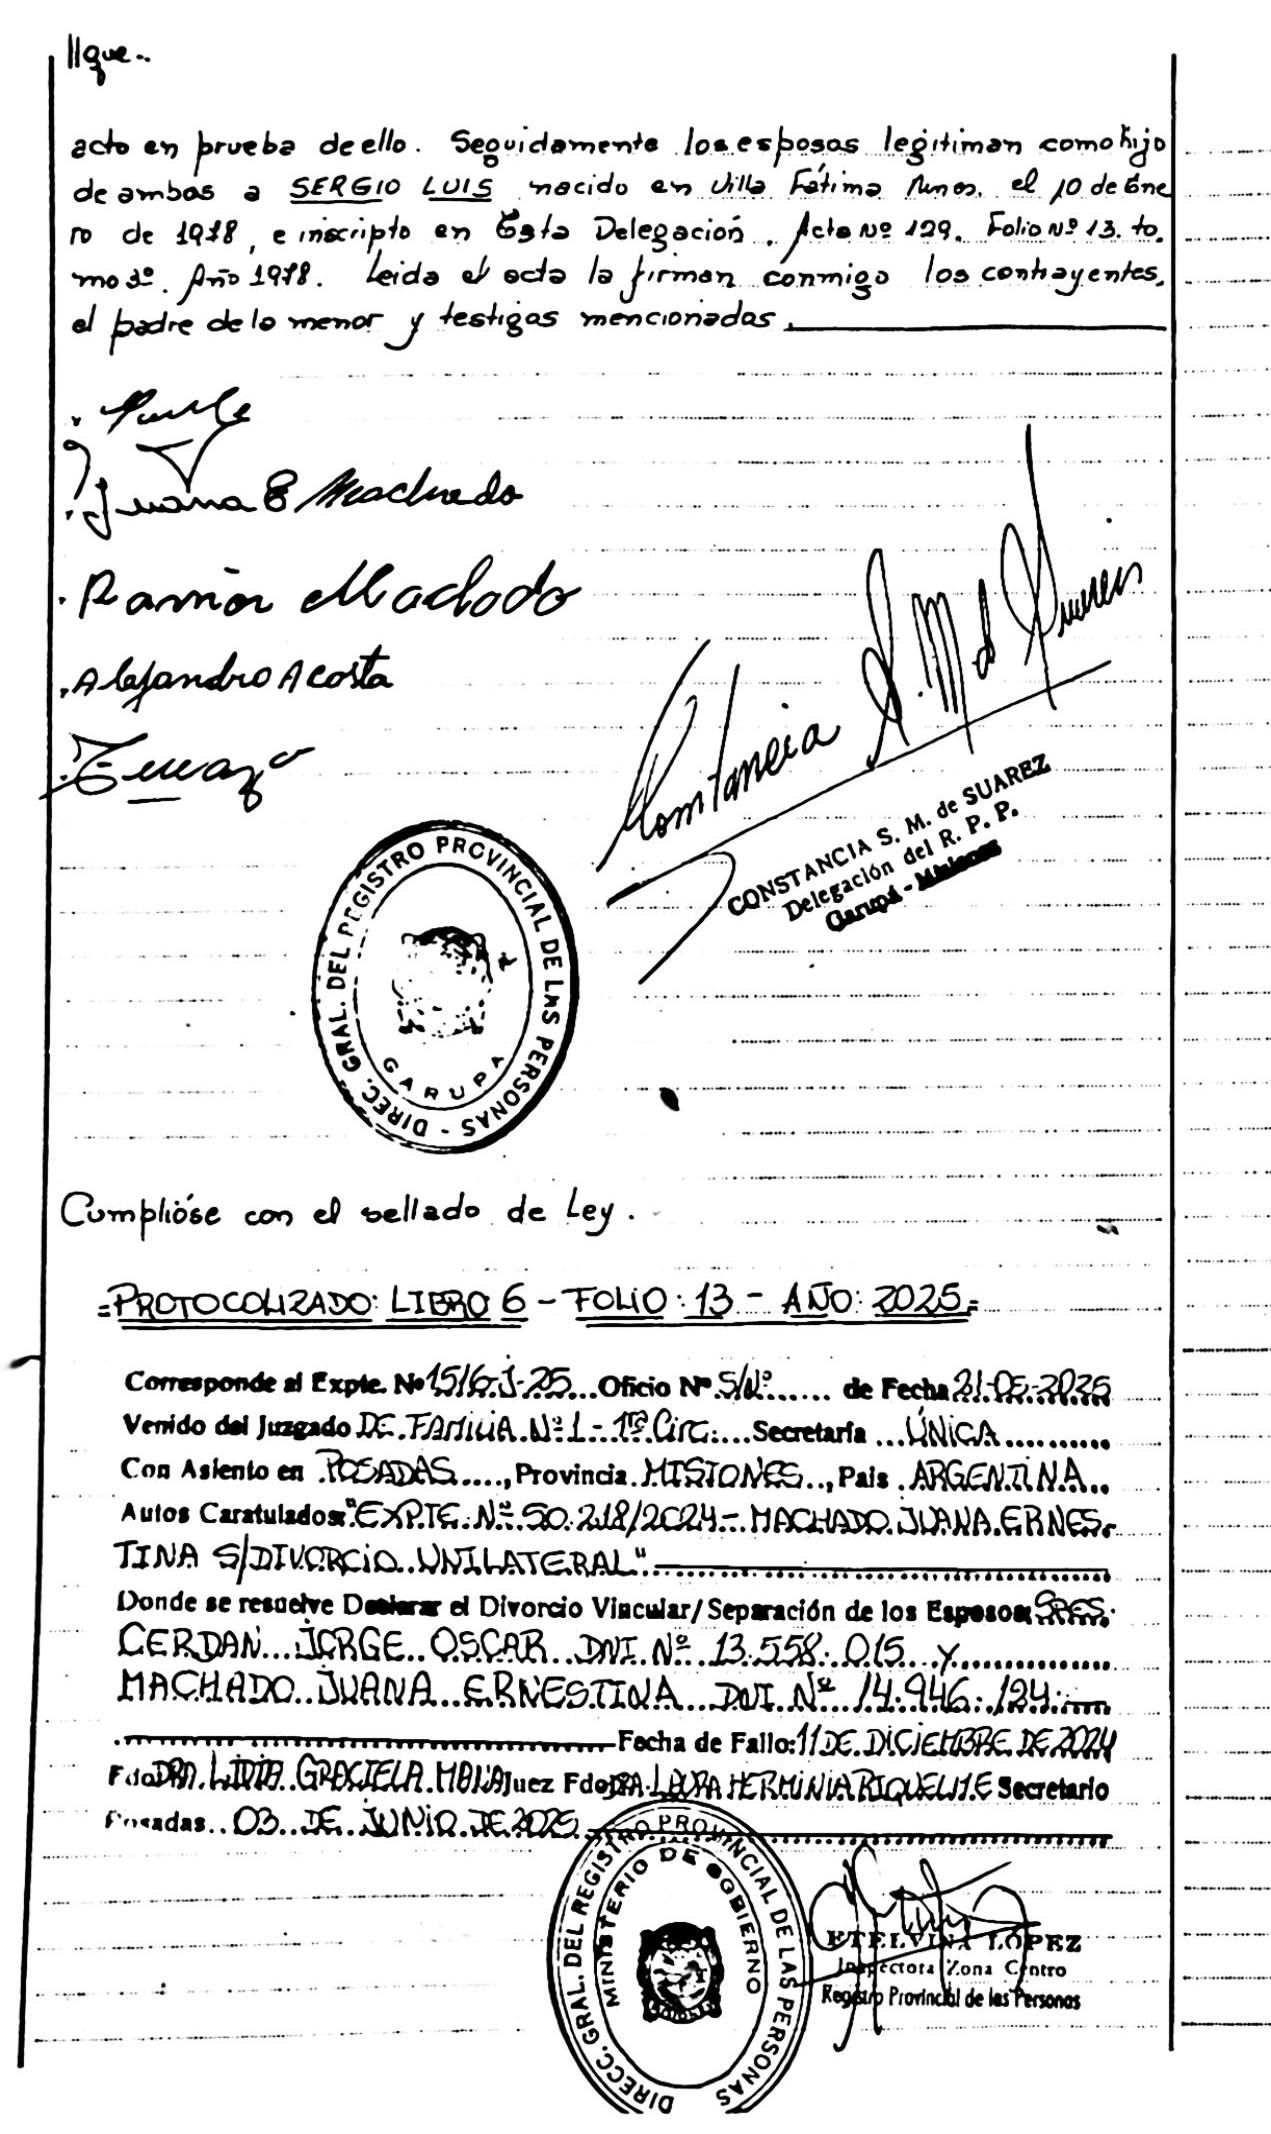 llque..
acto en prueba de ello. Seguidamente los esposos legitiman como hijo
de ambos a SERGIO LUIS nacido en Villa Fátima Mnes. el 10 de Ene
ro de 1978, e inscripto en Esta Delegación. Acta Nº 129. Folio Nº 13. to.
mo 3º. Año 1978. Leida el acta la firman conmigo los contrayentes,
el padre de la menor y testigos mencionados.
Juana E Machado
Ramón Machado
Alejandro Acosta
Constancia S. M d Suarez
CONSTANCIA S. M. de SUAREZ
Delegación del R. P. P.
Garupá - Misiones
DIREC. GRAL. DEL REGISTRO PROVINCIAL DE LAS PERSONAS -
GARUPA
Cumplióse con el sellado de Ley.
=PROTOCOLIZADO: LIBRO 6 - FOLIO: 13 - AÑO: 2025=
Corresponde al Expte. Nº 1516-J-25 Oficio Nº S/Nº de Fecha 21-05-2025
Venido del Juzgado DE FAMILIA Nº 1 - 1ra Circ. Secretaría ÚNICA
Con Asiento en POSADAS, Provincia MISIONES, País ARGENTINA
Autos Caratulados: "EXPTE. Nº 50.218/2024 - MACHADO JUANA ERNES-
TINA S/DIVORCIO UNILATERAL"
Donde se resuelve Declarar el Divorcio Vincular/Separación de los Esposos: SRES.
CERDAN JORGE OSCAR DNI Nº 13.558.015 y
MACHADO JUANA ERNESTINA DNI Nº 14.946.124
Fecha de Fallo: 11 DE DICIEMBRE DE 2024
Fdo DRA. LIDIA GRACIELA Juez Fdo DRA. LAURA HERMINIA RIQUELME Secretario
Posadas 03 DE JUNIO DE 2025
DIRECC. GRAL. DEL REGISTRO PROVINCIAL DE LAS PERSONAS
MINISTERIO DE GOBIERNO
ETELVINA LOPEZ
Inspectora Zona Centro
Registro Provincial de las Personas